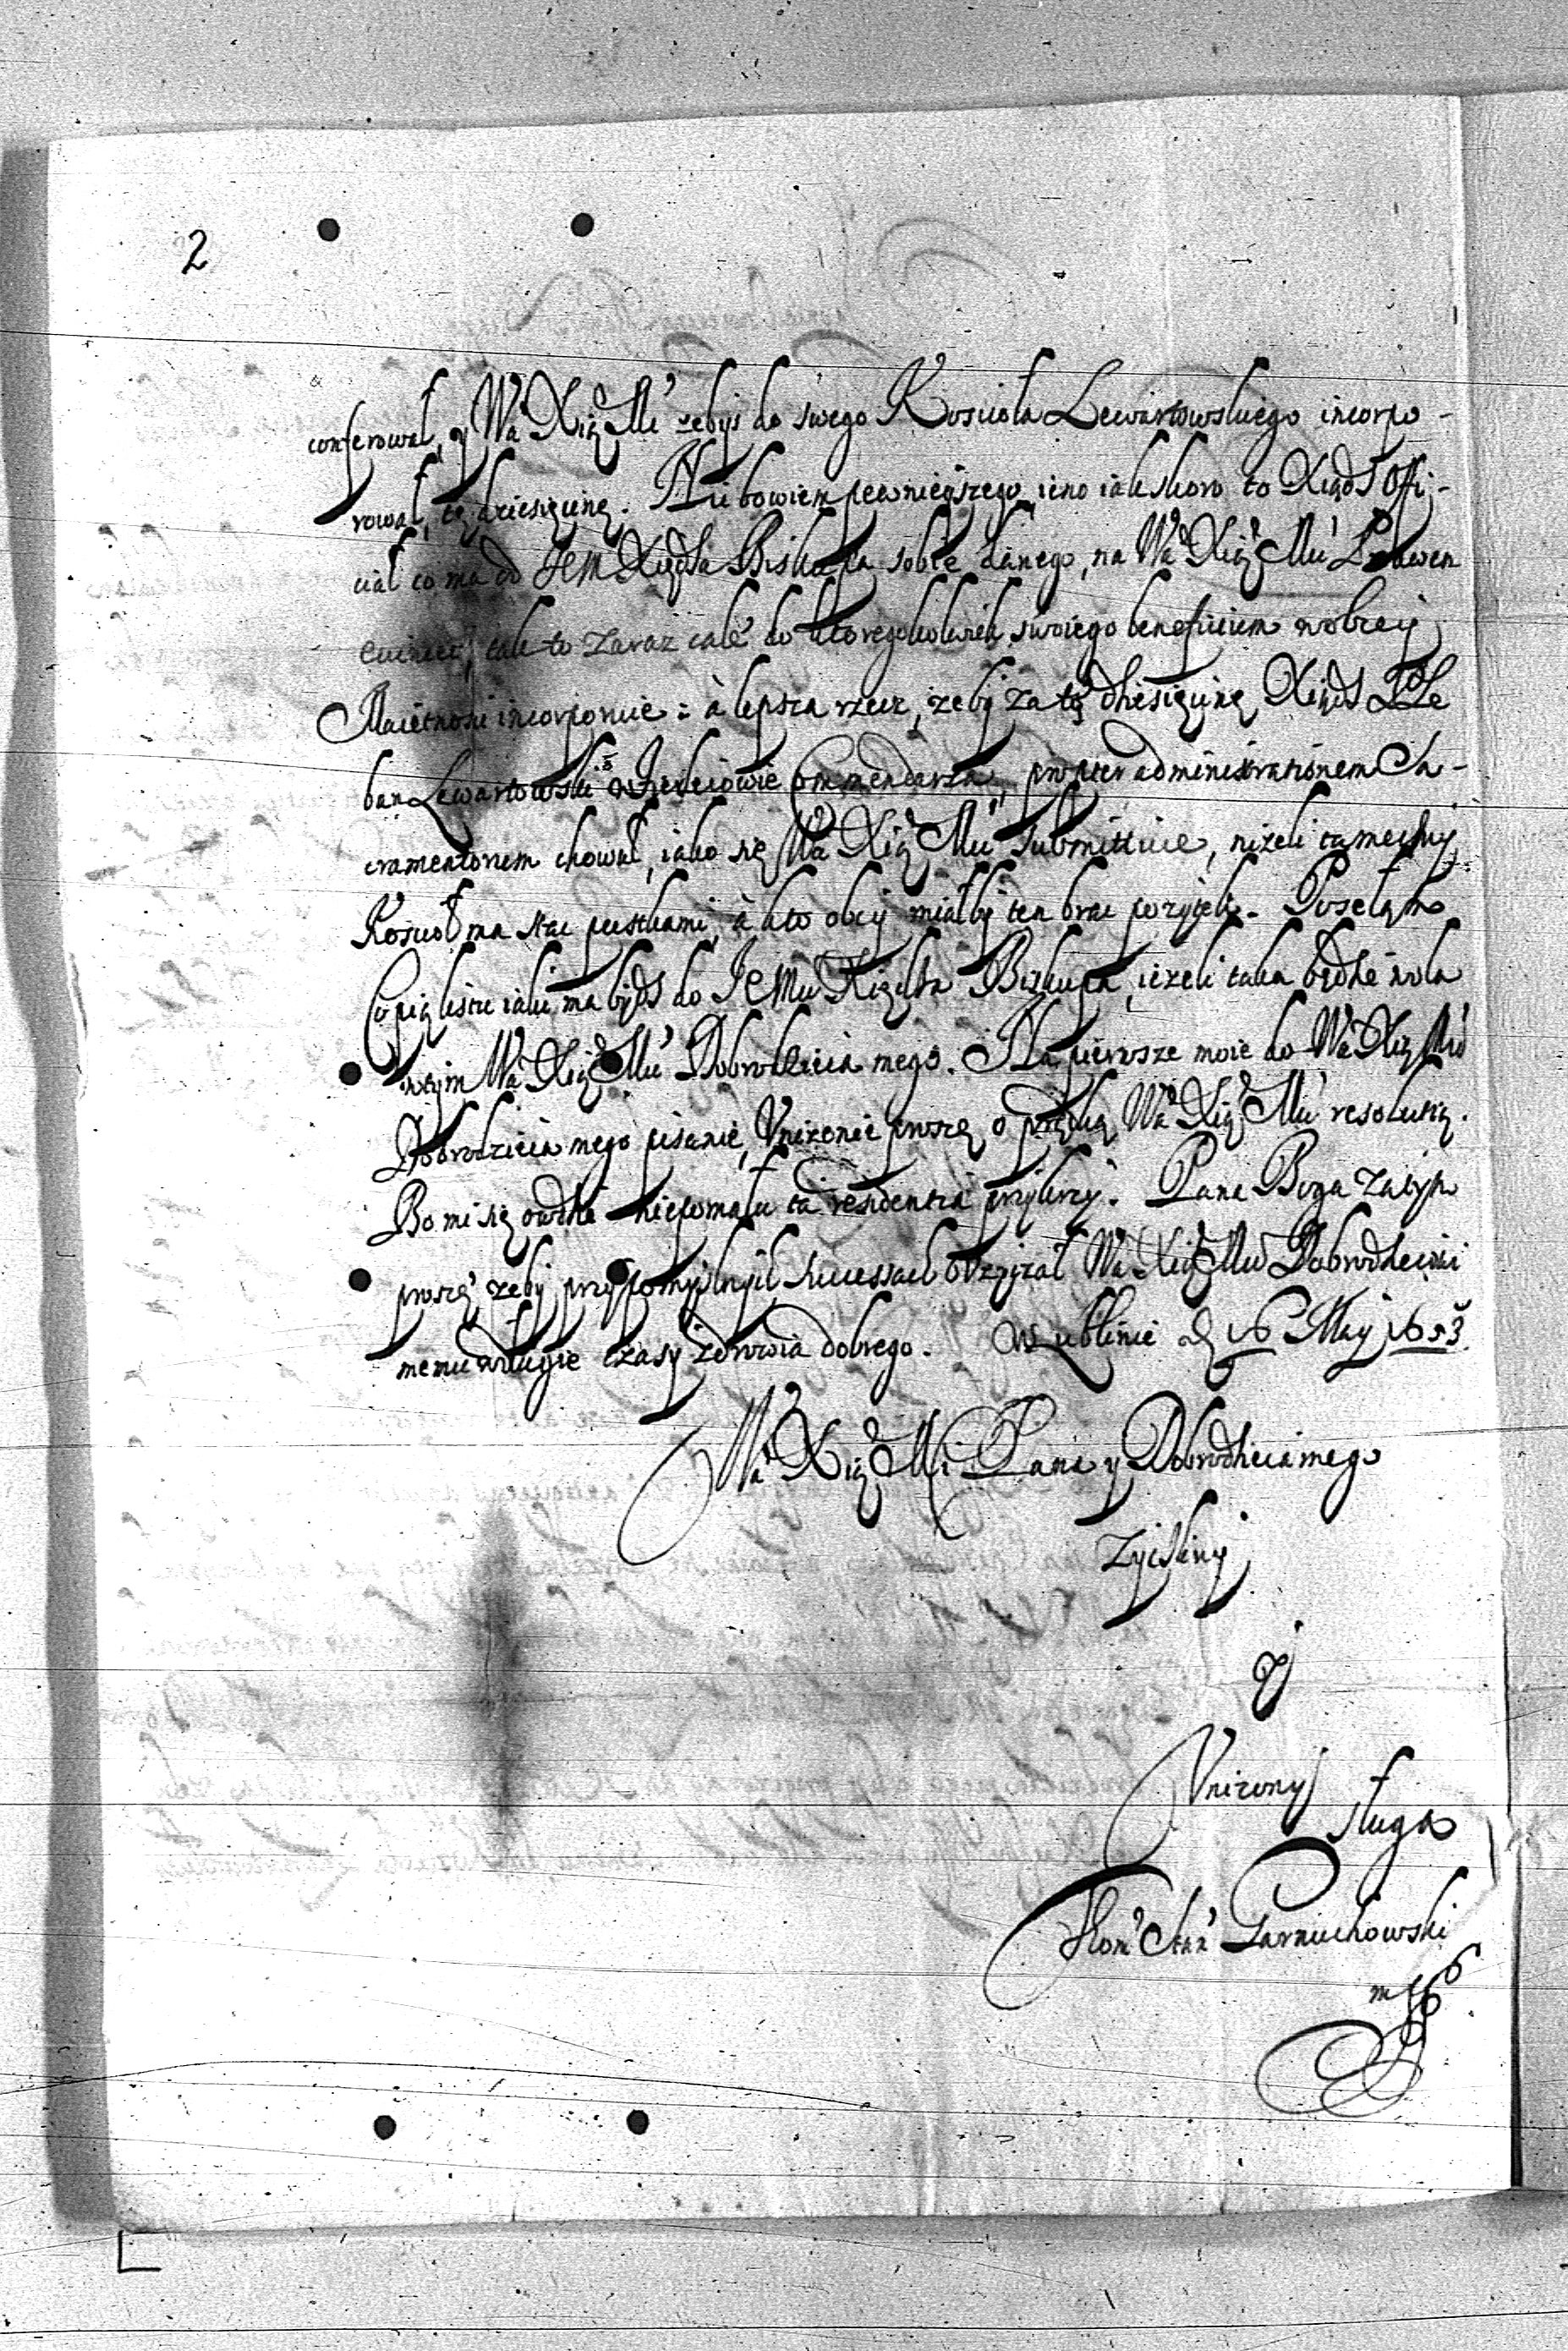 2
conferował, y Wa Xiąż Mć zebys do swego Koscioła Lewartowskiego incorpo-
rował, tę dziesięcinę. Nic bowiem pewnieyszego ieno iak skoro to Xiądz Offi-
ciał co ma od JEM Xiędza Biskupa sobie danego, na Wa Xiąż Mć
tak to zaraz cale do ktoregokolwiek swoiego beneficium wobcey
Maietnosci incorporuie: à lepsza rzecz, zeby za tę dziesięcinę Xiądz Ple
ban Lewartowski w Commendarza, propter administrationem Sa-
cramentorum chował, iako się Wa Xiąż Mć submittuie, nizeli tameczny
Koscioł ma stac pustkami, à kto obcy miałby ten brac pozytek. Posełam
Copię listu iaki ma bydz do JEMci Xiędza Biskupa, iezeli taka będzie wola
wtym Wa Xiąż Mci Dobrodzieia mego. Na pierwsze moie do Wa Xiąż Mci
Dobrodzieia mego pisanie, Vnizenie proszę o prętką Wa Xiąż Mci resolutią.
Bo mi się owdzie niepomału ta residentia przykrzy. Pana Boga zatym
proszę zeby przy pomyslnych successach vzyczał Wa Xiąż Mci Dobrodzieiowi
memu w długie czasy zdrowia dobrego. W Lublinie d 16 May 1653
Wa Xiąż Mci Pana y Dobrodzieia mego
Zyczliwy
y
Vnizony
sługa
Stan Parnichowski
mpp